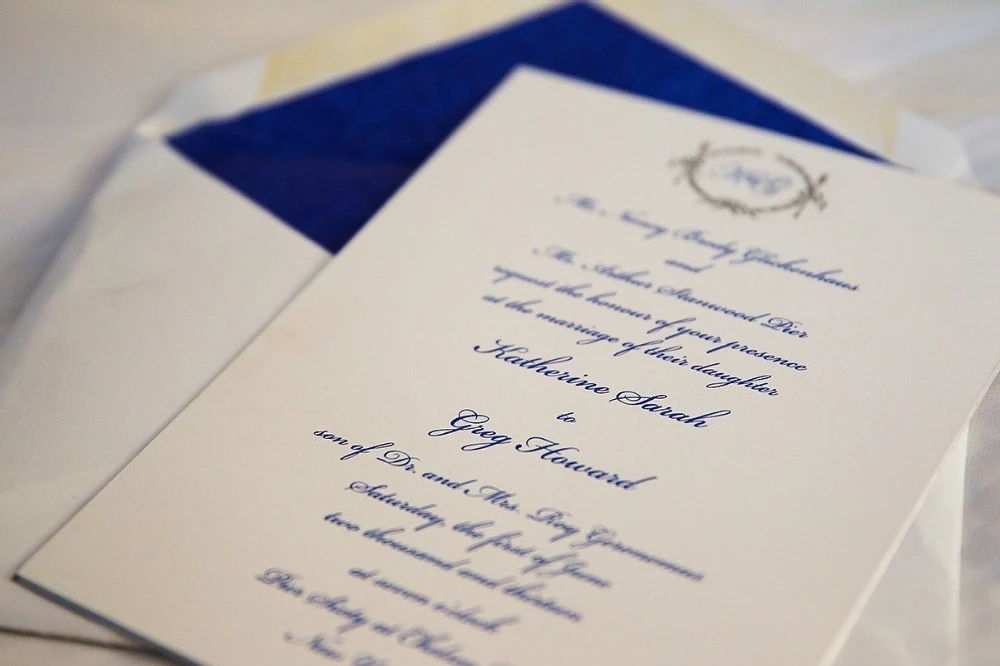 Nancy Brady Glickenhaus
and
Mr. Arthur Stanwood Pier
request the honour of your presence
at the marriage of their daughter
Katherine Sarah
to
Greg Howard
son of Dr. and Mrs. Roy
Saturday, the first of June
two thousand and thirteen
at seven o'clock
Pier Sixty at Chelsea
New